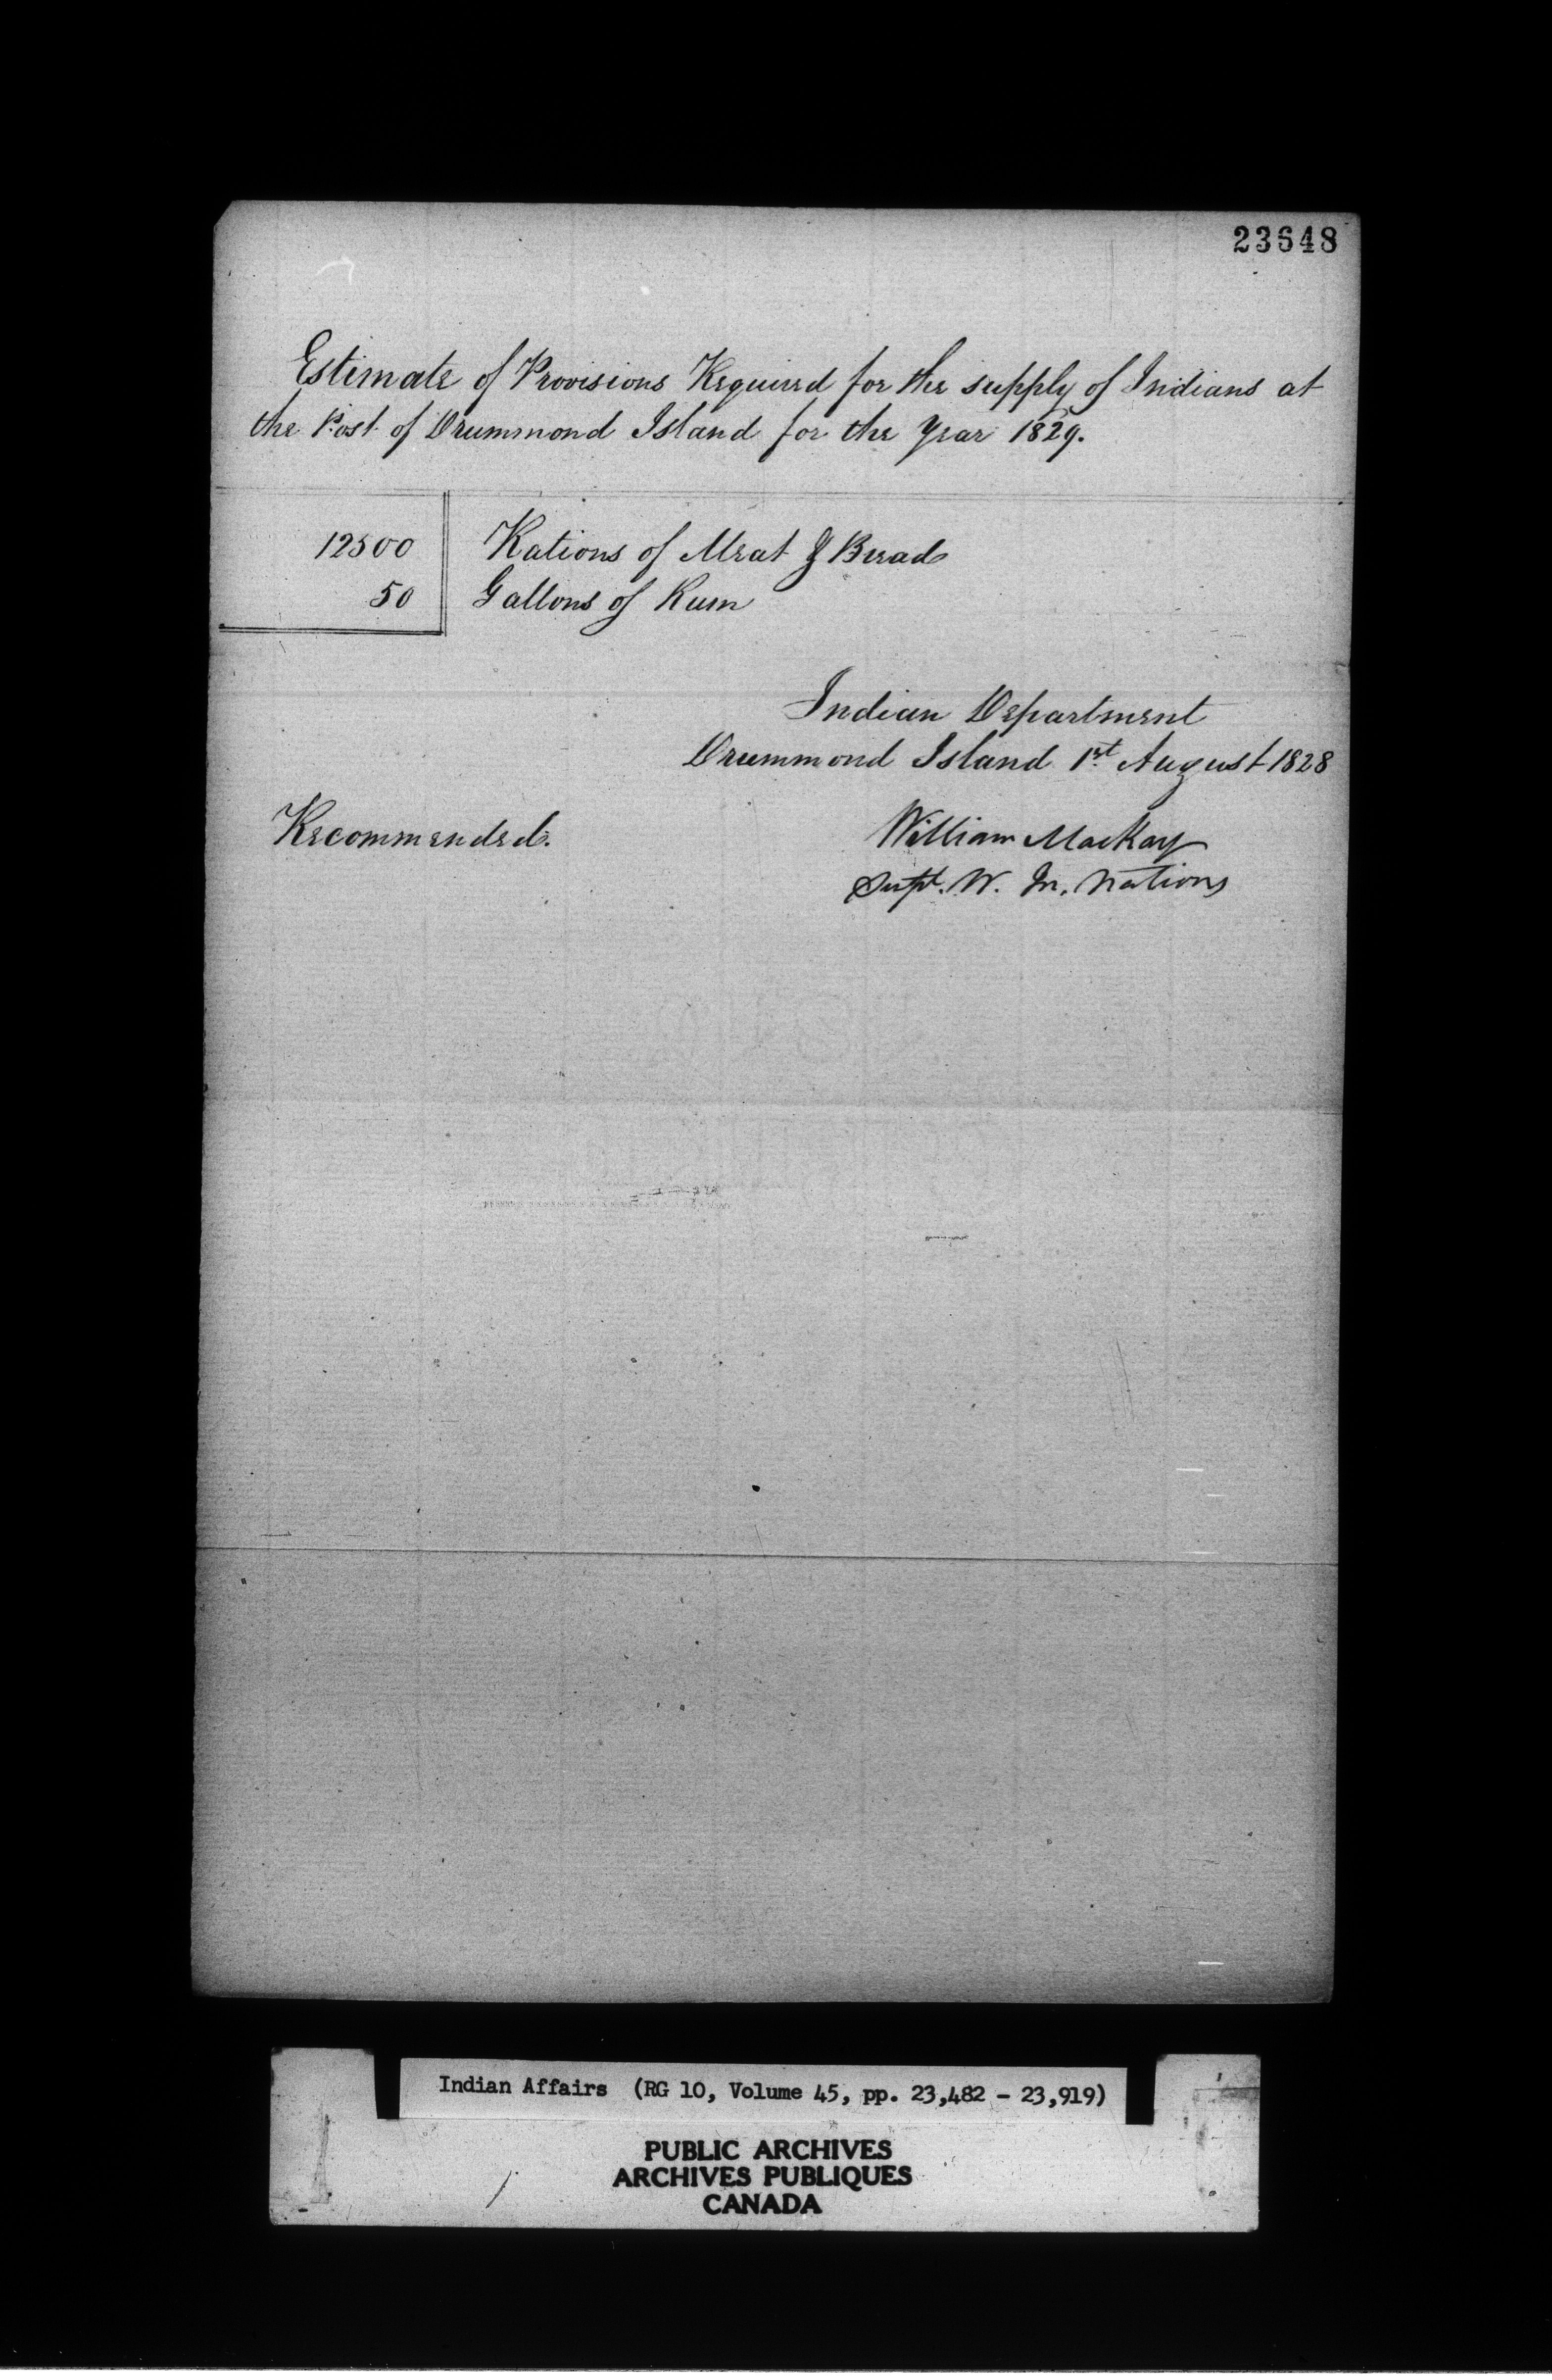 23648
Estimate of Provisions Required for the supply of Indians at
the Post of Drummond Island for the Year 1829.
12500 Rations of Meat & Bread
50 Gallons of Rum
Indian Department
Drummond Island 1st August 1828
Recommended.
William MacKay
Supt. W. In. Nations
Indian Affairs (RG 10, Volume 45, pp. 23,482 - 23,919)
PUBLIC ARCHIVES
ARCHIVES PUBLIQUES
CANADA